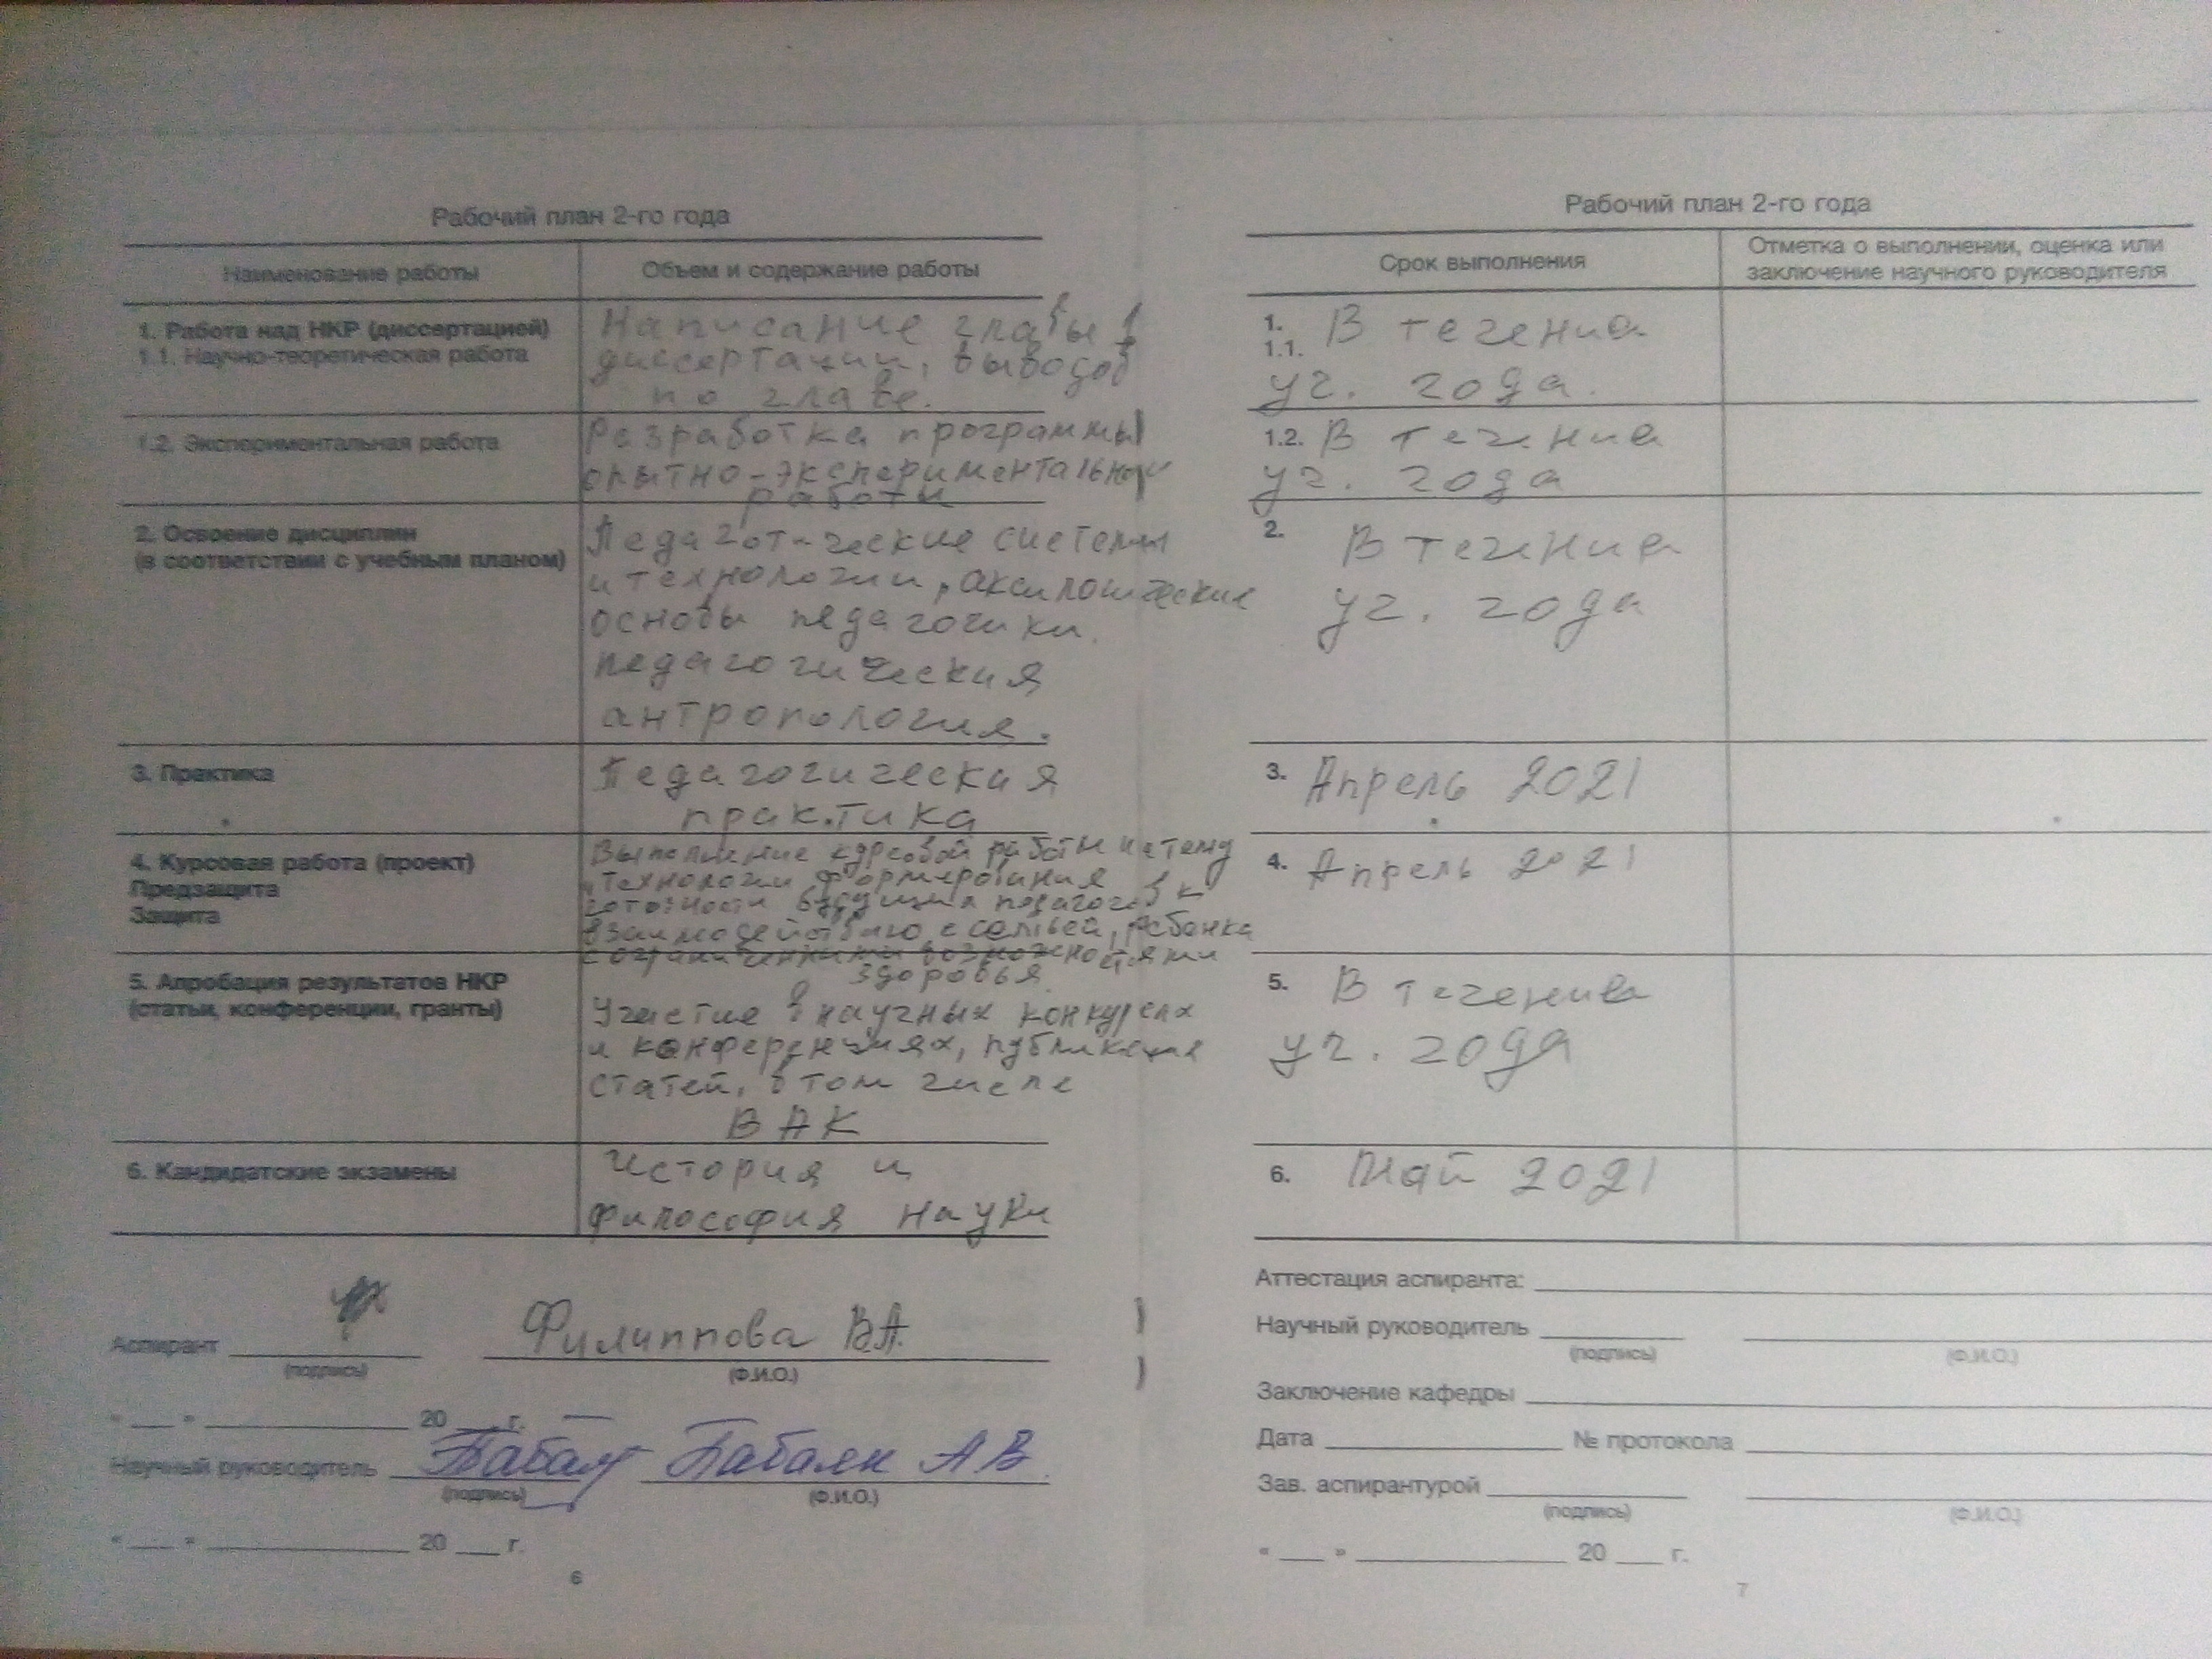 Рабочий план 2-го года
Наименование работы
Объем и содержание работы
1. Работа над НКР (диссертацией)
1.1. Научно-теоретическая работа
Написание главы 1
диссертации, выводов
по главе.
1.2. Экспериментальная работа
Разработка программы
опытно-экспериментальной
работы
2. Освоение дисциплин
(в соответствии с учебным планом)
Педагогические системы
и технологии, аксиологические
основы педагогики.
педагогическия
антропология.
3. Практика
Педагогическая
практика
4. Курсовая работа (проект)
Предзащита
Защита
Выполнение курсовой работы на тему
"Технологии формирования
готовности будущих педагогов к
взаимодействию с семьей, ребенка
с ограниченными возможностями
здоровья
5. Апробация результатов НКР
(статьи, конференции, гранты)
Участие в научных конкурсах
и конференциях, публикация
статей, в том числе
ВАК
6. Кандидатские экзамены
История и
философия науки
Аспирант
Филиппова В.А.
(подпись)
(Ф.И.О.)
« ___ » ___ 20 ___ г.
Научный руководитель
Бабаян А В
(подпись)
(Ф.И.О.)
« ___ » ___ 20 ___ г.
6
Рабочий план 2-го года
Срок выполнения
Отметка о выполнении, оценка или
заключение научного руководителя
1. В течение
1.1.
уч. года.
1.2. В течение
уч. года
2. В течение
уч. года
3. Апрель 2021
4. Апрель 2021
5. В течение
уч. года
6. Май 2021
Аттестация аспиранта:
Научный руководитель
(подпись)
(Ф.И.О.)
Заключение кафедры
Дата ___ № протокола
Зав. аспирантурой
(подпись)
(Ф.И.О.)
« ___ » ___ 20 ___ г.
7